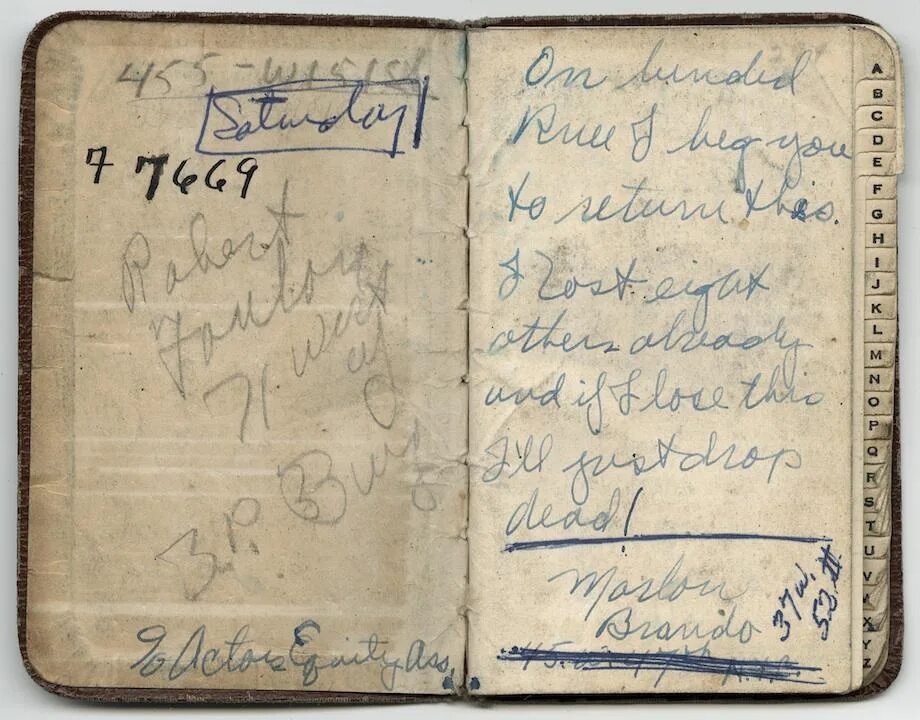 455 - W151st
Saturday
7 7669
Robert
Fowlon
71 West
of
3P. Bur
% Actors Equity Ass.
On bended
Knee I beg you
to return this.
I lost eight
others already
and if I lose this
I'll just drop
dead!
Marlon
Brando
37 W.
52 St
A
B
C
D
E
F
G
H
I
J
K
L
M
N
O
P
Q
R
S
T
U
V
W
X
Y
Z